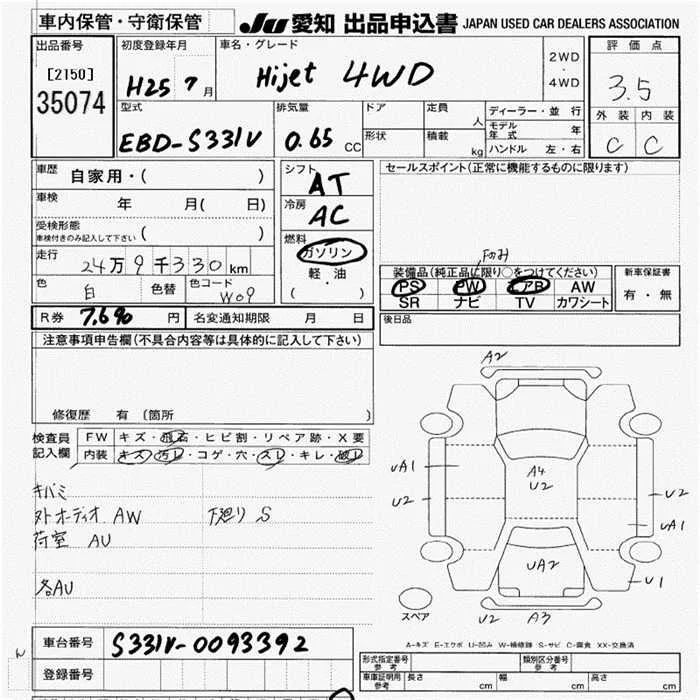 車内保管・守衛保管 JU 愛知 出品申込書 JAPAN USED CAR DEALERS ASSOCIATION
出品番号 初度登録年月 車名・グレード 評価点
[2150] H25 7月 Hijet 4WD 2WD・4WD 3.5
35074
型式 排気量 ドア 定員 人 ディーラー・並行 外装 内装
EBD-S331V 0.65 CC 形状 積載 kg モデル年式 年 C C
ハンドル 左・右
車歴 自家用・( ) シフト AT セールスポイント(正常に機能するものに限ります)
車検 年 月( 日) 冷房 AC
受検形態 ( )
車検付きのみ記入して下さい
燃料 ガソリン
軽・油
( )
走行 24万9千330km
Fのみ
装備品(純正品に限り○をつけてください) 新車保証書
PS PW エアB AW 有・無
SR ナビ TV カワシート
色 白 色替 色コード W09
R券 7,690円 名変通知期限 月 日 後日品
注意事項申告欄(不具合内容等は具体的に記入して下さい)
修復歴 有 (箇所 )
検査員記入欄 FW キズ・飛石・ヒビ割・リペア跡・X要
内装 キズ・汚レ・コゲ・穴・スレ・キレ・破レ
キバミ
外オーディオ AW 下廻り S
荷室 AU
各AU
A2
UA1
U2
A4
U2
U2
UA1
UA2
U1
スペア
U2 A3
A-キズ E-エクボ U-凹み W-補修跡 S-サビ C-腐食 XX-交換済
車台番号 S331V-0093392
登録番号
形式指定番号 参考 類別区分番号 参考
車庫証明用 参考 長さ cm 幅 cm 高さ cm